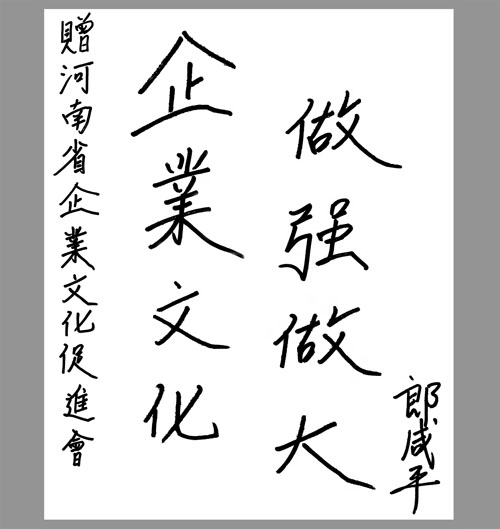 贈河南省企業文化促進會
企業文化
做强做大
郎咸平